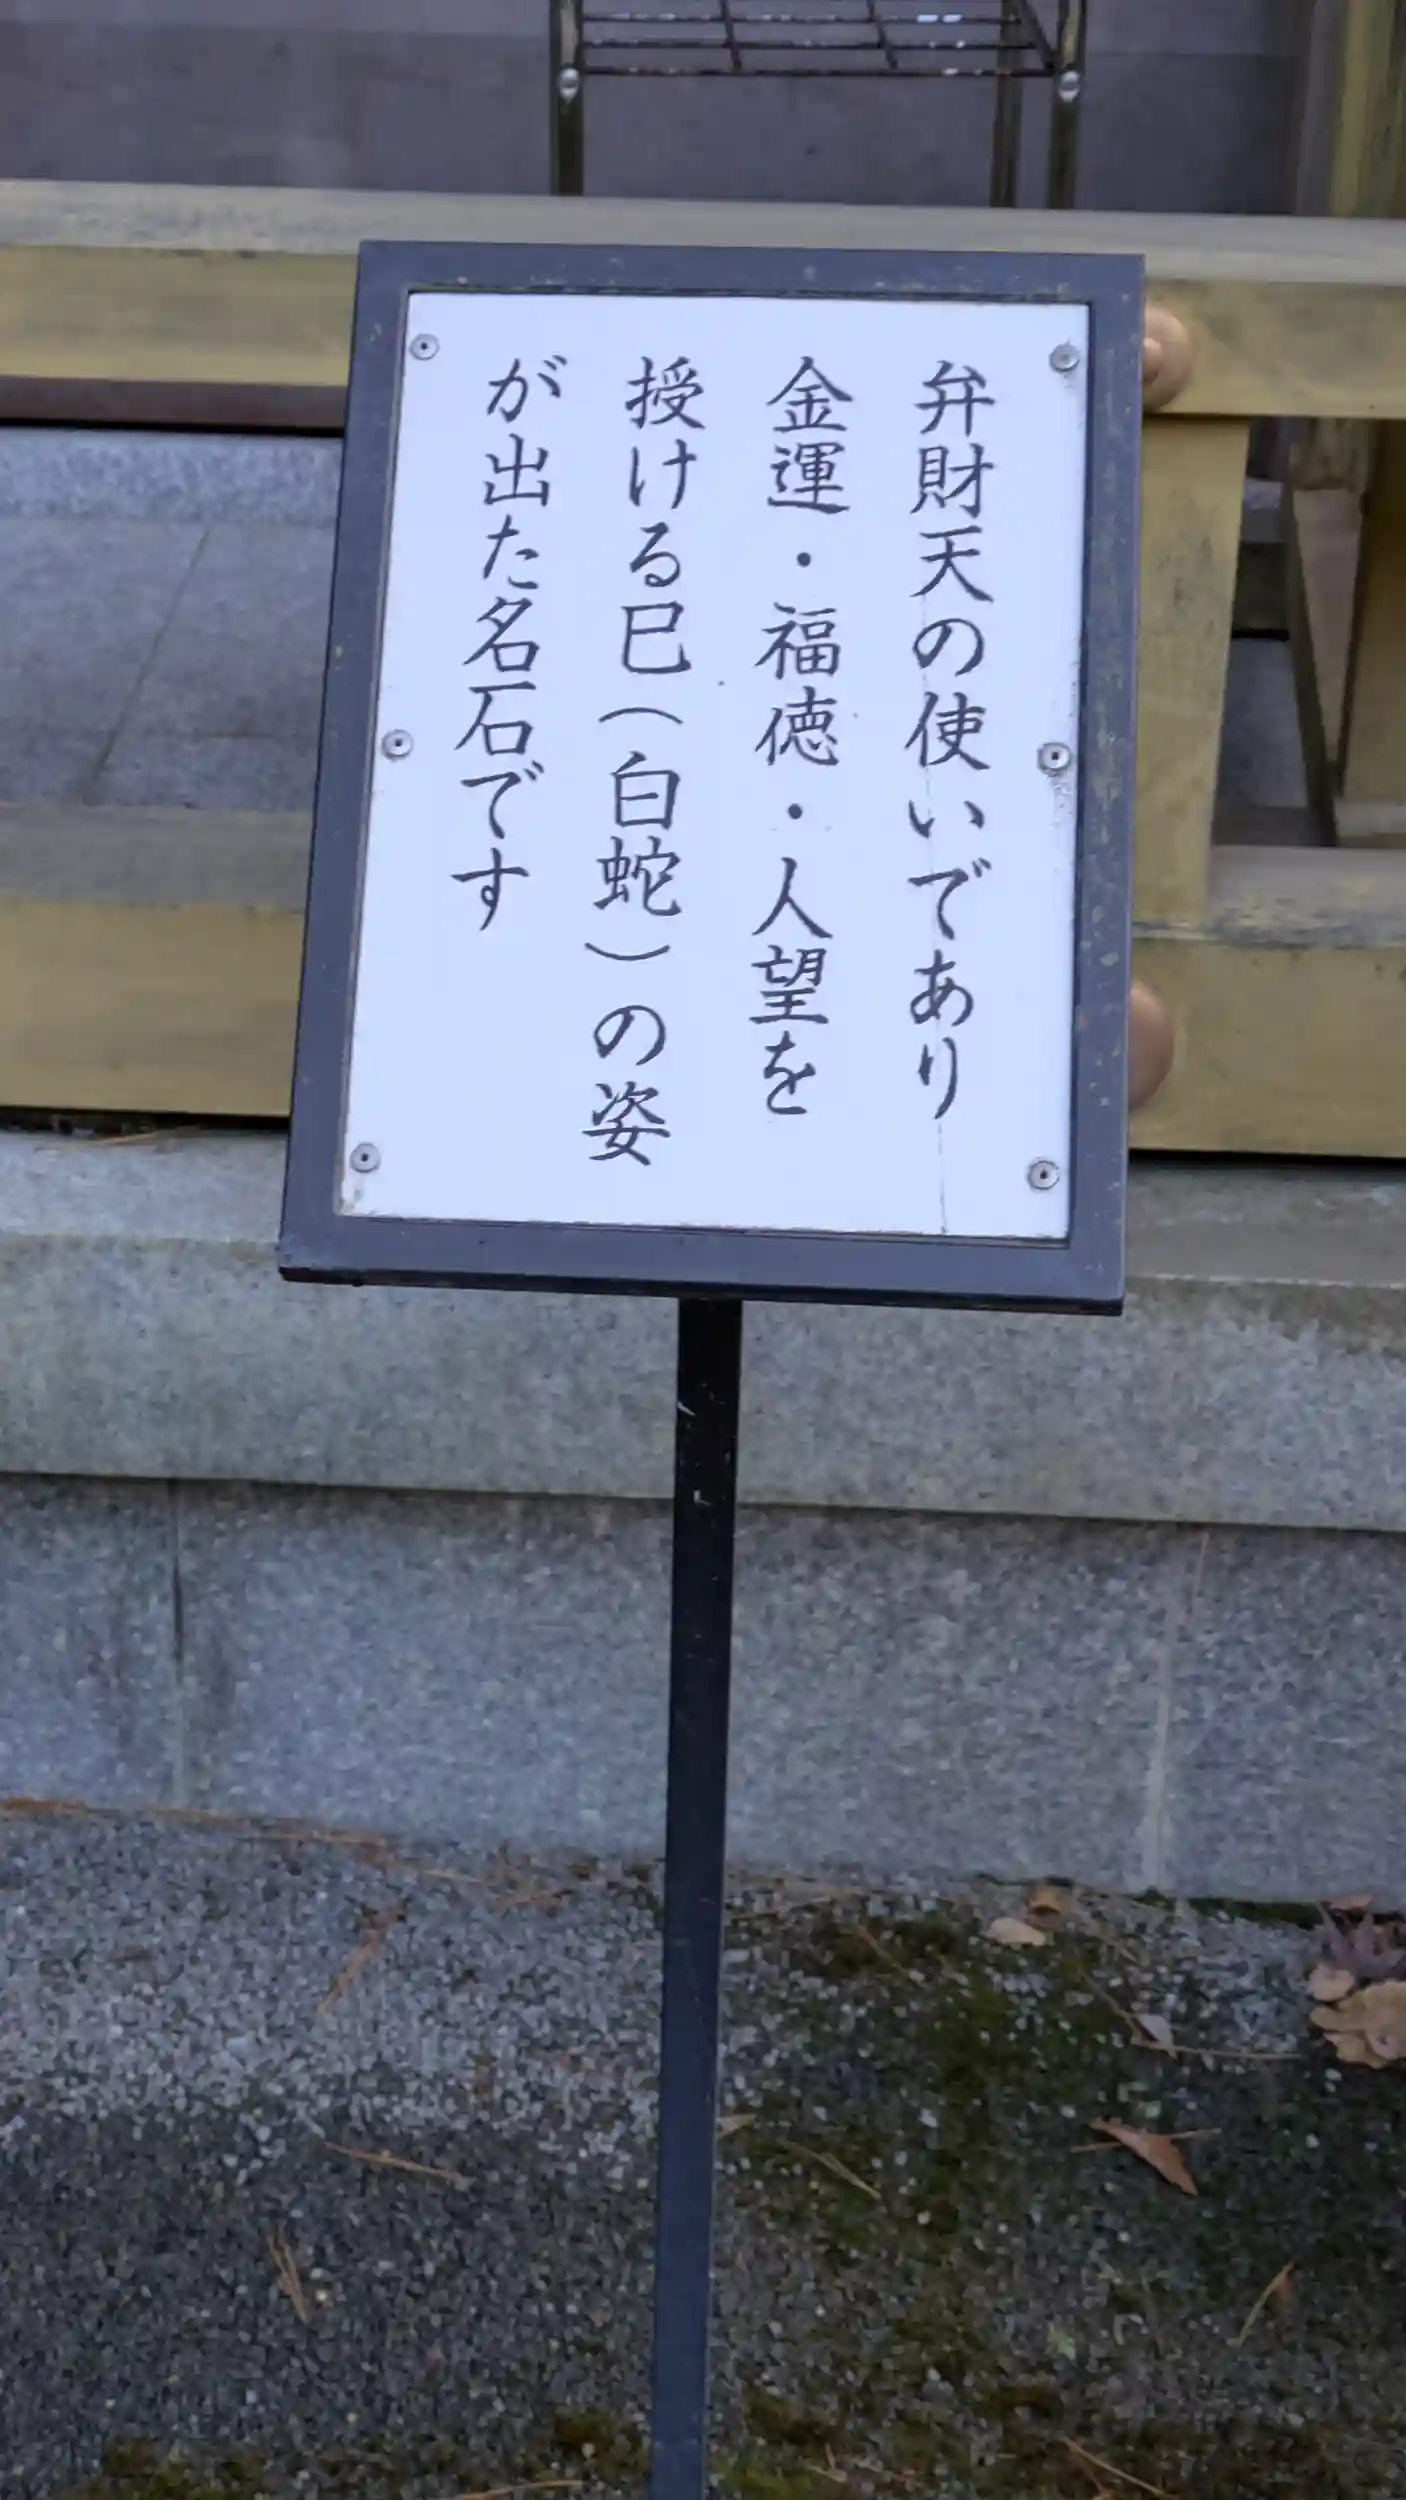 弁財天の使いであり
金運・福徳・人望を
授ける巳（白蛇）の姿
が出た名石です